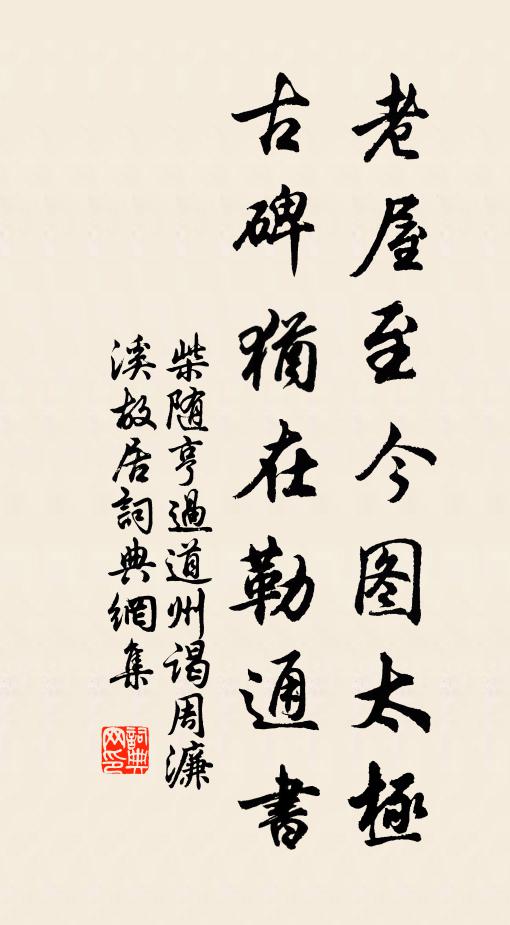 老屋至今图太極
古碑猶在勒通書
柴随亨過道州谒周濂
溪故居詞典網集
詞典
网印